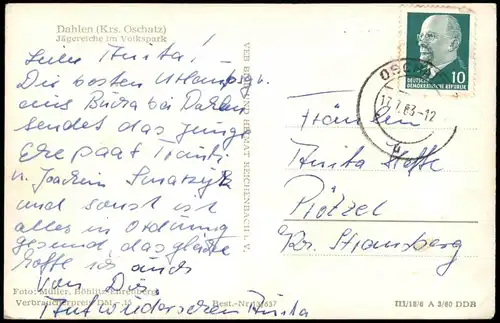 Dahlen (Krs. Oschatz)
Jägereiche im Volkspark
Liebe Anita!
Die besten Urlaubs
aus Bucha bei Dahlen
sendet das junge
Ehepaar Trauti
u. Joachim
und sonst ist
alles in Ordnung
gesund, das gleiche
hoffe ich auch
von Dir.
Auf Wiedersehen Anita
Foto: Müller, Böhlitz-Ehrenberg
Verbraucherpreis DM -.15
Best.-Nr. 13/637
VEB BILD UND HEIMAT REICHENBACH I. V.
OSCHATZ
17.7.63-12
10
DEUTSCHE
DEMOKRATISCHE REPUBLIK
Fräulein
Anita
Plötzel
Kr. Strausberg
III/18/6 A 3/60 DDR